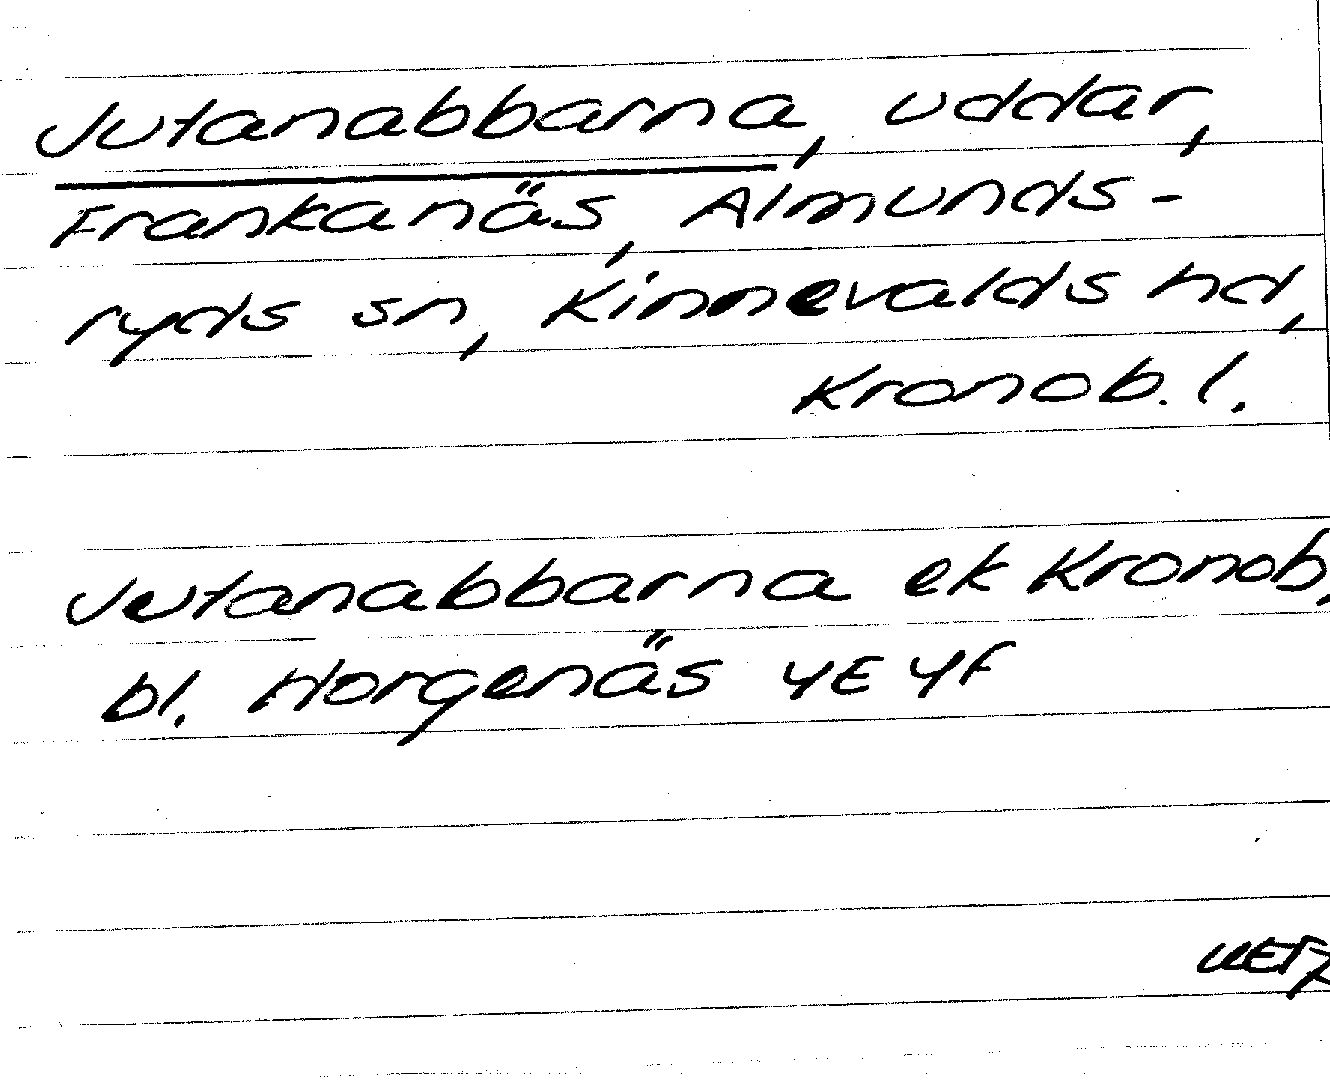 Jutanabbarna, uddar,
Frankanäs, Almunds-
ryds sn, Kinnevalds hd,
Kronob. l.
Jutanabbarna ek Kronob.
bl. Horgenäs 4E 4F